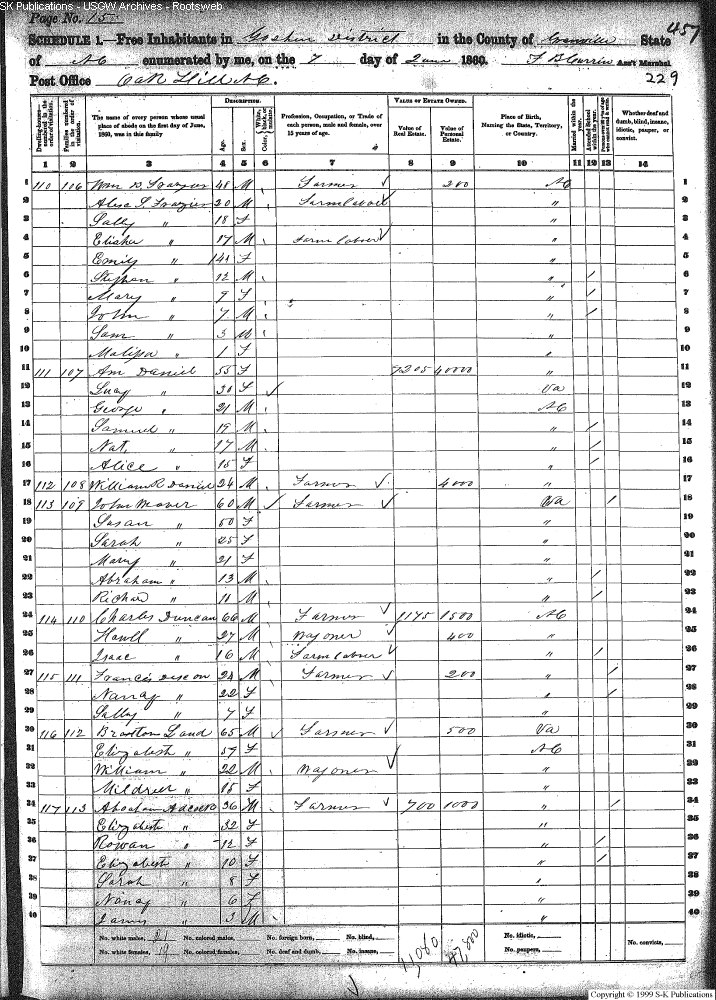 SK Publications - USGW Archives - Rootsweb
Page No. 15
SCHEDULE 1.—Free Inhabitants in Goshen District in the County of Granville State 457
of NC enumerated by me, on the 7 day of June 1860. Ass't Marshal
Post Office Oak Hill NC. 229
DESCRIPTION. VALUE OF ESTATE OWNED.
Dwelling-houses—numbered in the order of visitation. Families numbered in the order of visitation. The name of every person whose usual place of abode on the first day of June, 1860, was in this family Age. Sex. Color, White, black, or mulatto. Profession, Occupation, or Trade of each person, male and female, over 15 years of age. Value of Real Estate. Value of Personal Estate. Place of Birth, Naming the State, Territory, or Country. Married within the year. Attended School within the year. Whether deaf and dumb, blind, insane, idiotic, pauper, or convict.
1 2 3 4 5 6 7 8 9 10 11 12 13 14
1 110 106 Wm Frazier 48 M Farmer ✓ 200 NC 1
2 Frazier 20 M Farm labor ✓ " 2
3 Sally " 18 F " 3
4 Elisha " 17 M Farm labor ✓ " 4
5 Emily " 14 F " 5
6 Stephen " 12 M " / 6
7 Mary " 9 F " / 7
8 John " 7 M " / 8
9 Sam " 3 M " 9
10 Malissa " 1 F " 10
11 111 107 Daniel 55 F 7205 40000 " 11
12 Lucy " 30 F ✓ Va 12
13 George " 21 M NC 13
14 Samuel " 19 M " / 14
15 Nat. " 17 M " / 15
16 Alice " 15 F " / 16
17 112 108 William R Daniel 24 M Farmer ✓ 4000 " 17
18 113 109 John 60 M ✓ Farmer ✓ Va / 18
19 Susan " 50 F " 19
20 Sarah " 25 F " 20
21 Mary " 21 F " 21
22 Abraham " 13 M " / 22
23 Richard " 11 M " / 23
24 114 110 Charles Duncan 66 M Farmer ✓ 1175 1500 NC 24
25 Howell " 27 M Wagoner ✓ 400 " 25
26 Isaac " 16 M Farm labor ✓ " / 26
27 115 111 Francis 24 M Farmer ✓ 200 " / 27
28 Nancy " 22 F " / 28
29 Sally " 7 F " 29
30 116 112 Land 65 M ✓ Farmer ✓ 500 Va 30
31 Elizabeth " 57 F NC 31
32 William " 22 M Wagoner ✓ " 32
33 Mildred " 15 F " 33
34 117 113 Abraham Adcock 36 M Farmer ✓ 700 1000 " / 34
35 Elizabeth " 32 F " 35
36 Rowan " 12 F " / 36
37 Elizabeth " 10 F " / 37
38 Sarah " 8 F " 38
39 Nancy " 6 F " 39
40 James " 3 M " 40
No. white males, 21 No. colored males, No. foreign born, No. blind, No. idiotic, No. convicts,
No. white females, 19 No. colored females, No. deaf and dumb, No. insane, No. paupers,
Copyright © 1999 S-K Publications